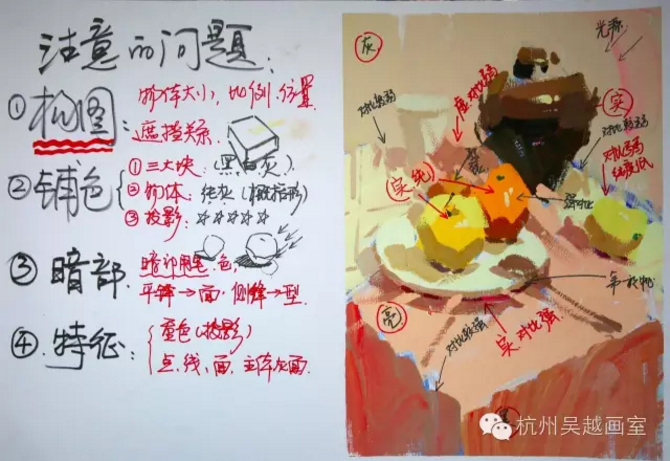 注意的问题:
①构图: 物体大小,比例.位置
遮挡关系.
②铺色 ①三大块:(黑白灰).
②物体:纯灰(概括形)
③投影:☆☆☆☆☆
③暗部. 暗部用笔.色.
平锋→面.侧锋→型.
④.特征: 重色(投影)
点.线.面.主体灰面.
灰
光源
对比较弱
虚对比弱
实
对比较弱
对比弱
纯度低
实(纯)
强对比
亮
对比较强
实.对比强.
杭州吴越画室